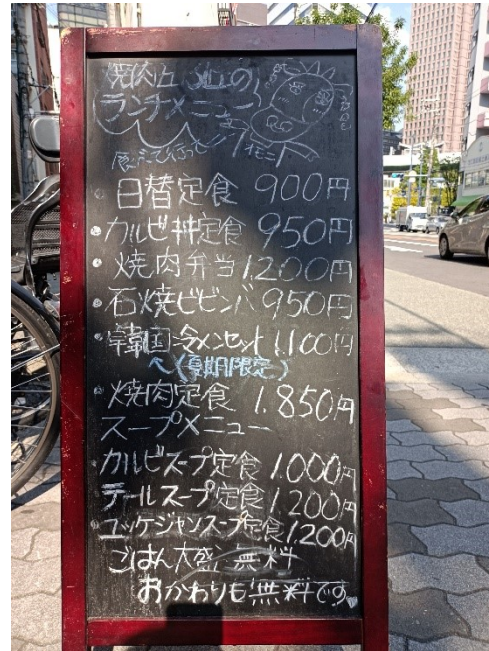 焼肉丘の
ランチメニュー
食べて行って!!
・日替定食 900円
・カルビ丼定食 950円
・焼肉弁当 1.200円
・石焼ビビンバ 950円
・韓国冷メンセット 1.100円
↖(夏期限定)
・焼肉定食 1.850円
スープメニュー
カルビスープ定食 1.000円
テールスープ定食 1200円
ユッケジャンスープ定食 1.200円
ごはん大盛 無料
おかわりも無料です